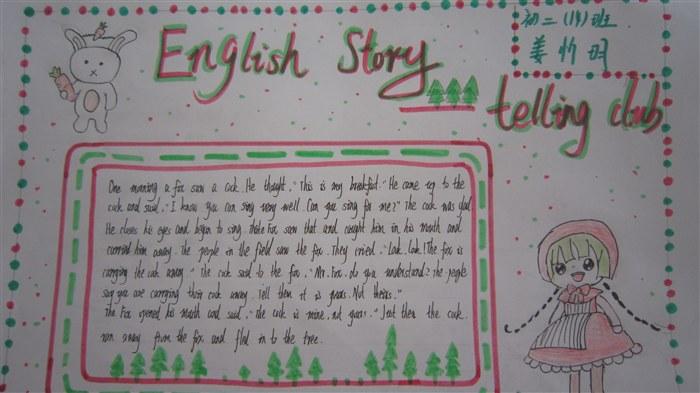 English Story
telling club
初二(14)班
姜忻明
One morning a fox saw a cock. He thought, "This is my breakfast." He came up to the
cock and said, "I know you can sing very well. Can you sing for me?" The cock was glad.
He closes his eyes and began to sing. The fox saw that and caught him in his mouth and
carried him away. The people in the field saw the fox. They cried, "Look, Look! The fox is
carrying the cock away." The cock said to the fox, "Mr. Fox, do you understand? The people
say you are carrying their cock away. Tell them it is yours. Not theirs."
The fox opened his mouth and said, "The cock is mine, not yours." Just then the cock
run away from the fox and fled in to the tree.